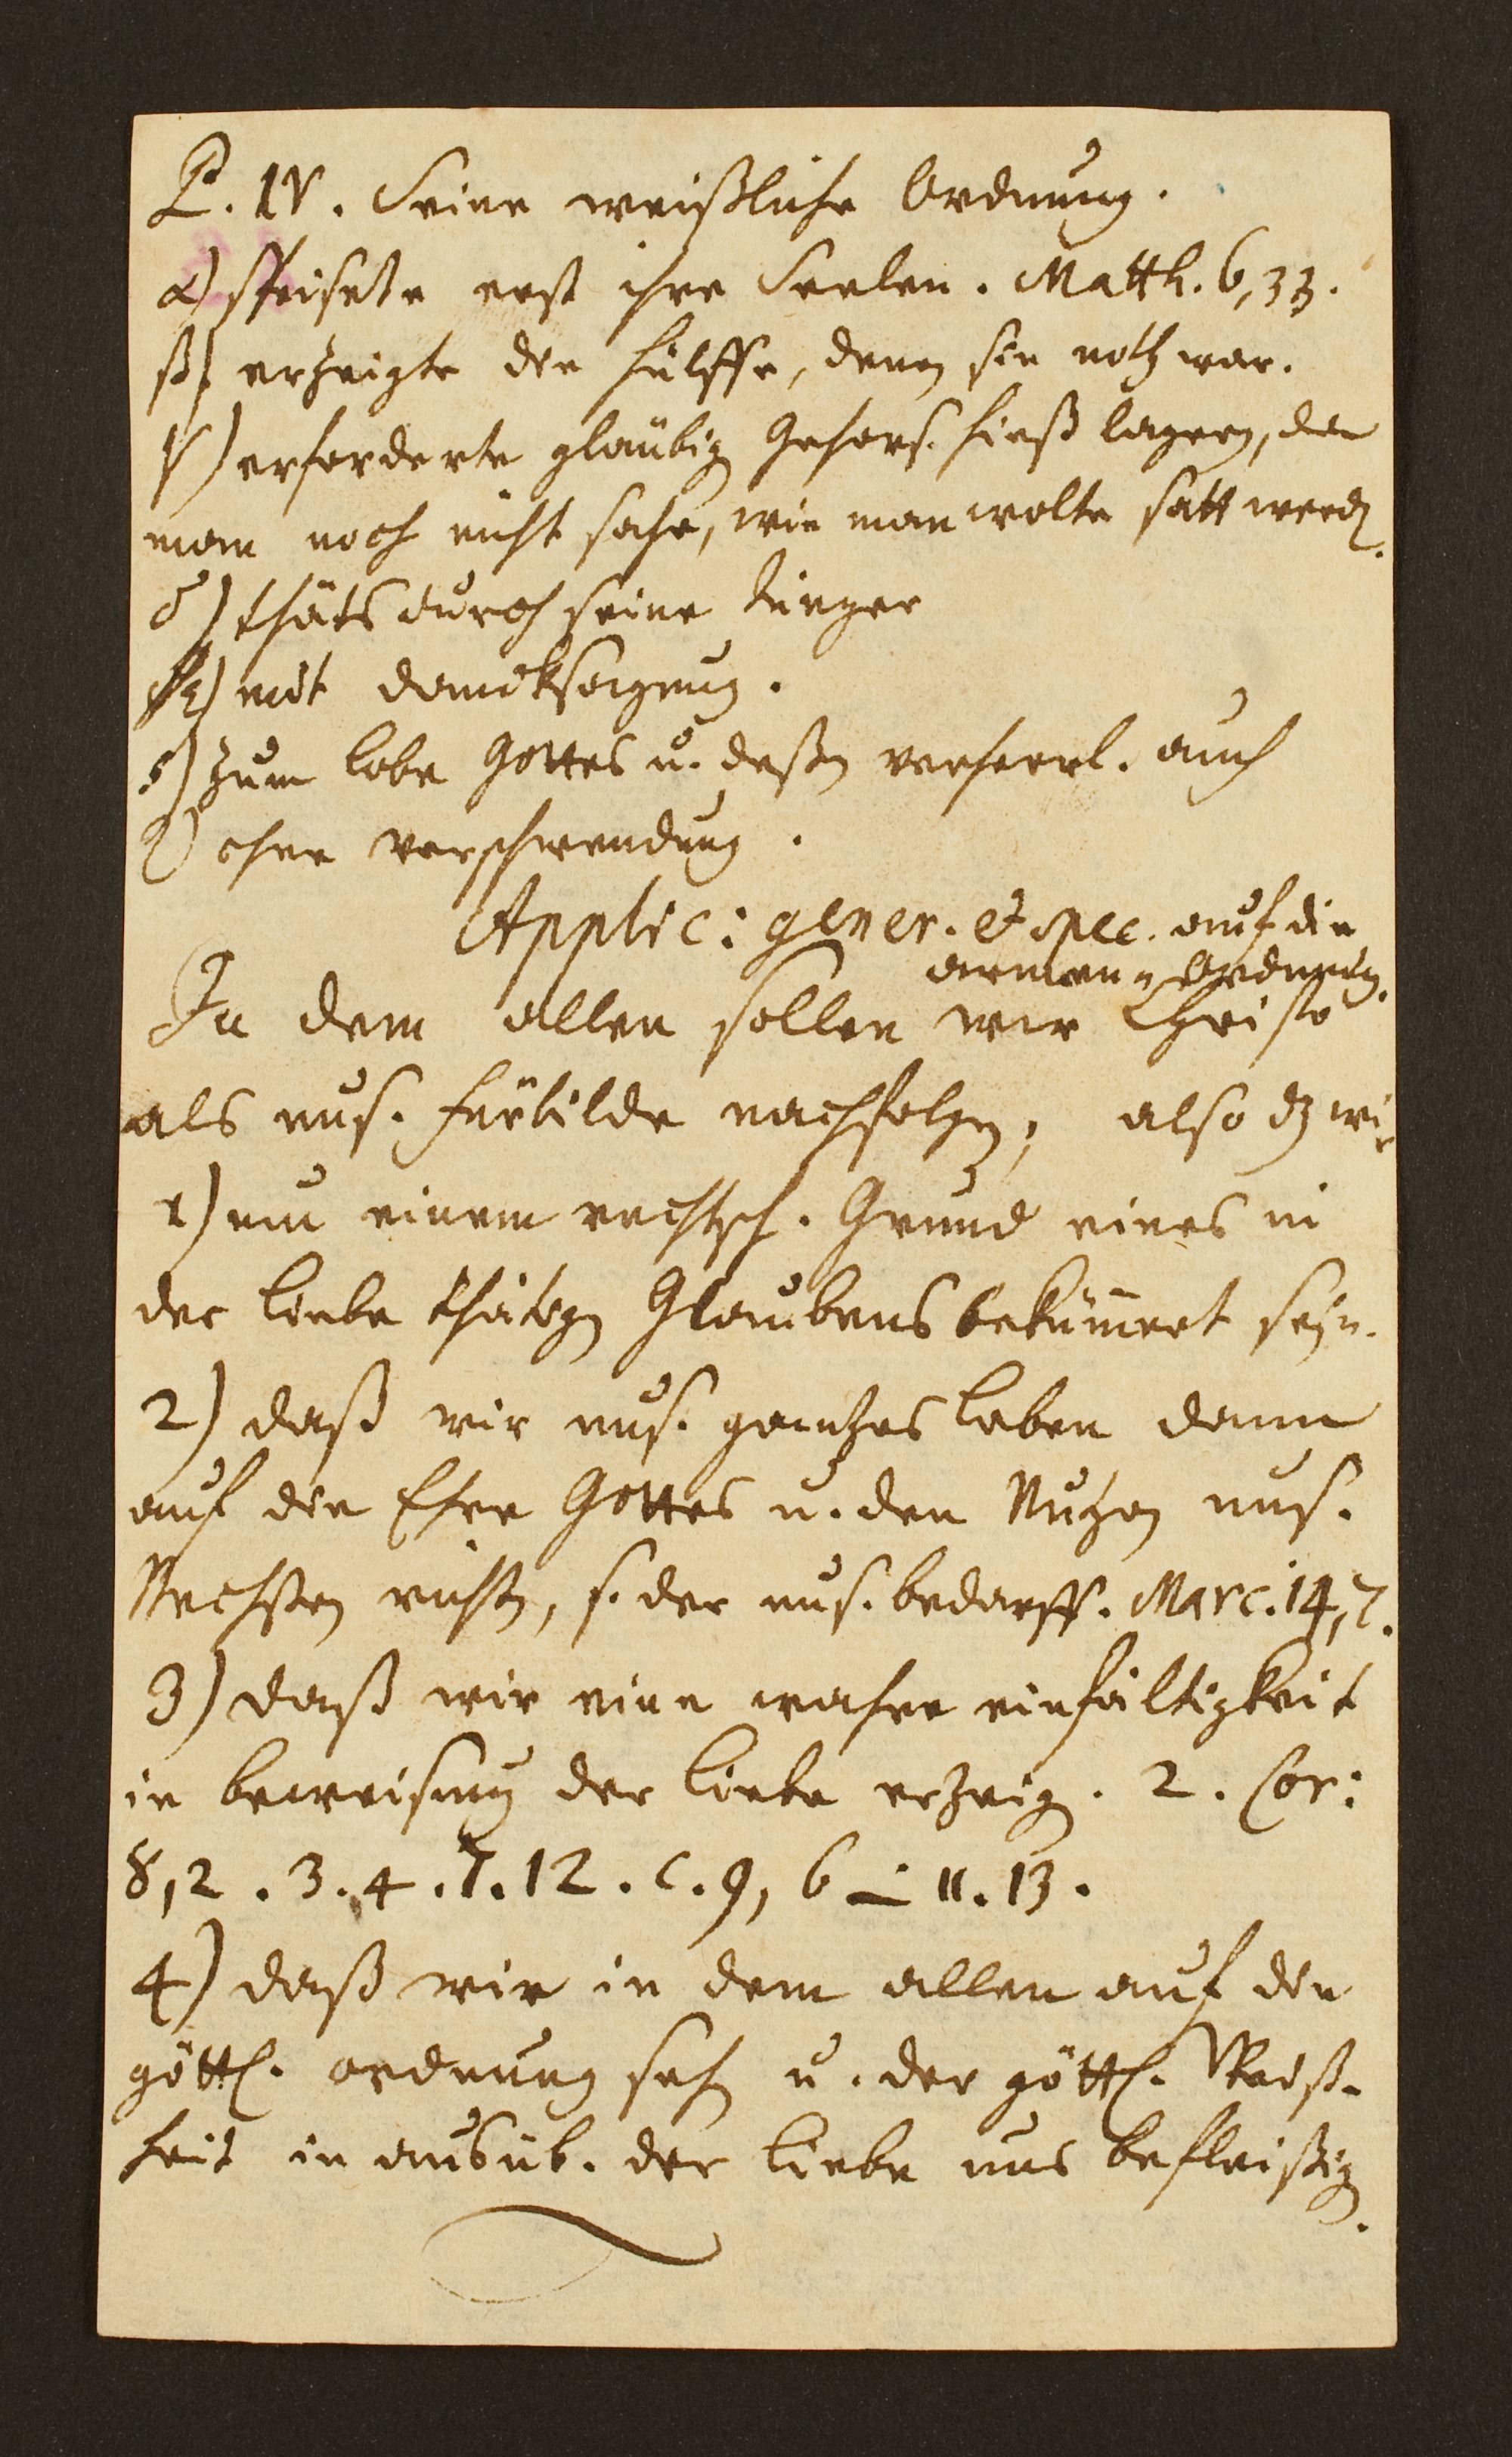 P. IV. Seine weißliche Ordnung.
α) speisete erst ihre Seelen. Matth. 6, 33.
β) erzeigte die hülffe, denen sie noth war.
γ) erforderte gläubig Gehors. hieß lagern, da
man noch nicht sahe, wie man wolte satt werden.
δ) thäts durch seine Jünger
ε) mit dancksagung.
ζ) zum lobe Gottes u. deßen verherrl. auch
η) ohne verschwendung.
Applic: gener. & spec. auf die
armen-Ordnung.
In dem allen sollen wir Christo
als uns. fürbilde nachfolgen, also dz wir
1) um einem rechtsch. Grund eines in
der liebe thätigen Glaubens bekümert seyn.
2) daß wir uns. gantzes leben dann
auf die Ehre Gottes u. den Nutzen uns.
Nechsten richten, s. der uns. bedarff. Marc. 14, 7.
3) daß wir eine wahre einfältigkeit
in beweisung der liebe erzeig. 2. Cor:
8, 2. 3. 4. 7. 12. C. 9, 6 - 11. 13.
4) daß wir in dem allen auf die
göttl. ordnung sehen u. der göttl. Weiß-
heit in ausüb. der liebe uns befleißigen.